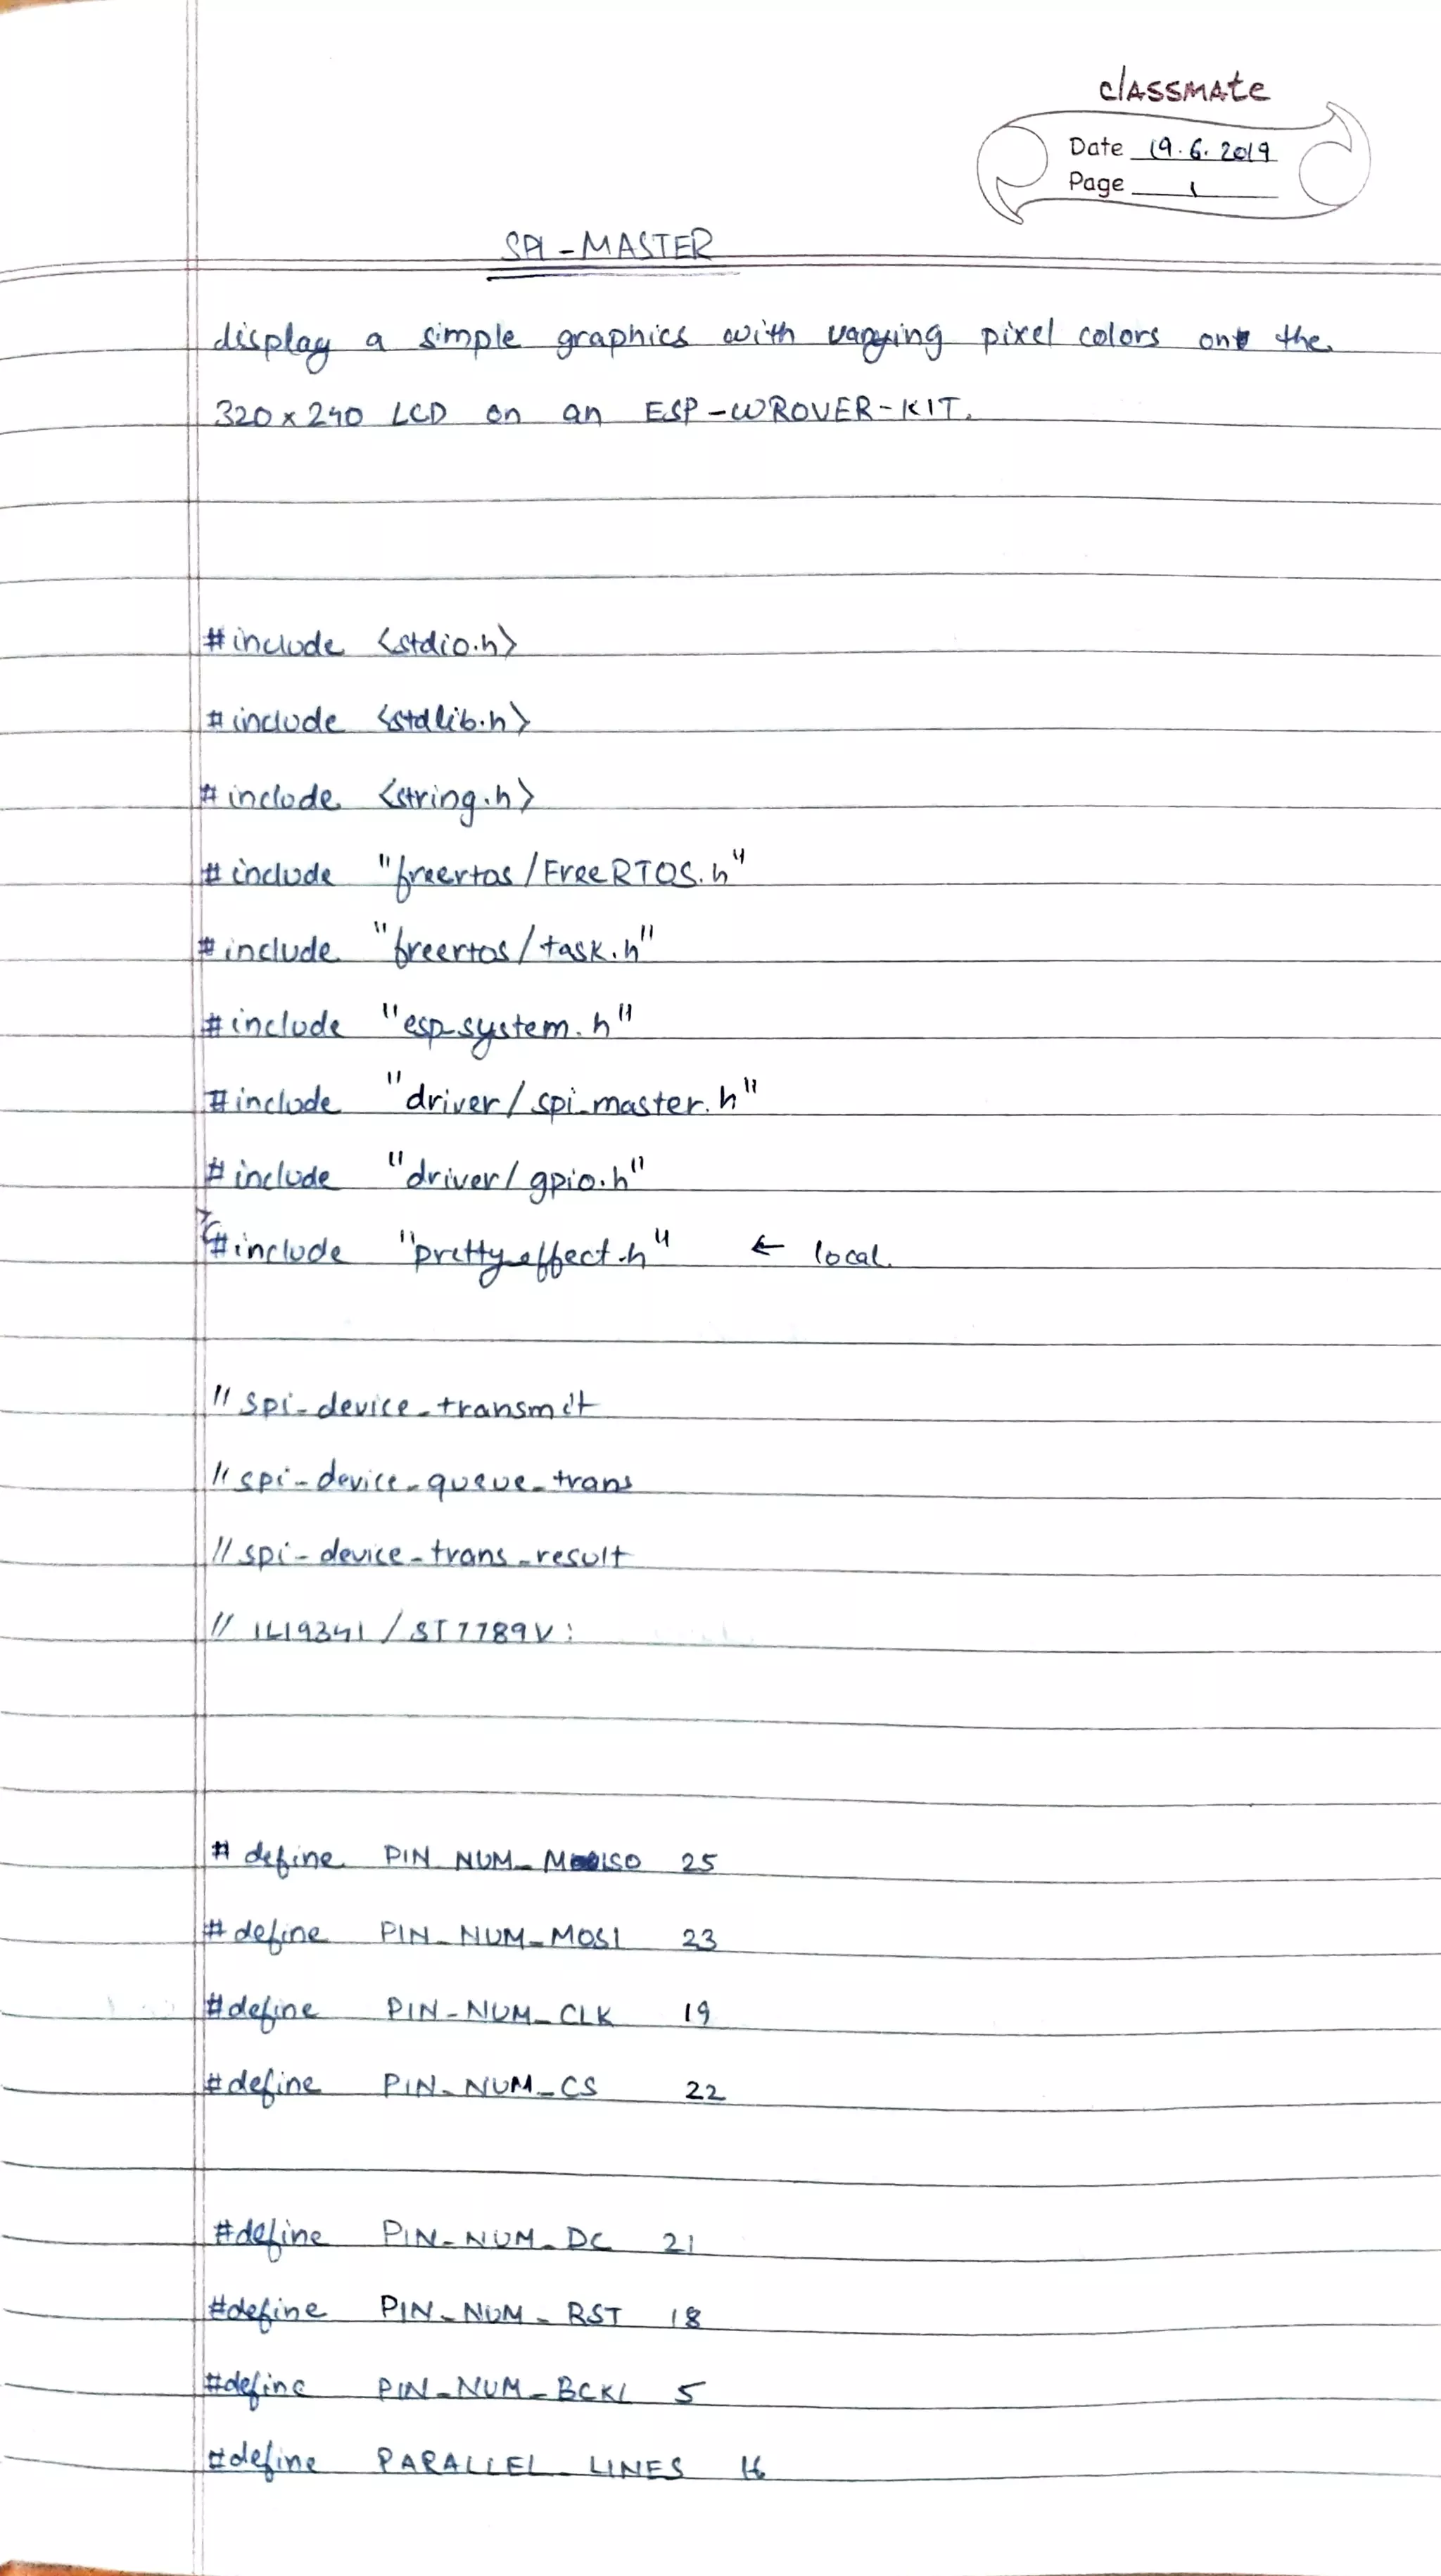 classmate
Date 19.6.2019
Page 1
SPI-MASTER
display a simple graphics with varying pixel colors on the
320 x 240 LCD on an ESP-WROVER-KIT.
#include <stdio.h>
#include <stdlib.h>
#include <string.h>
#include "freertos/FreeRTOS.h"
#include "freertos/task.h"
#include "esp_system.h"
#include "driver/spi_master.h"
#include "driver/gpio.h"
#include "pretty_effect.h" ← local
// spi_device_transmit
// spi_device_queue_trans
// spi_device_trans_result
// ILI9341 / ST7789V :
#define PIN_NUM_MISO 25
#define PIN_NUM_MOSI 23
#define PIN_NUM_CLK 19
#define PIN_NUM_CS 22
#define PIN_NUM_DC 21
#define PIN_NUM_RST 18
#define PIN_NUM_BCKL 5
#define PARALLEL_LINES 16